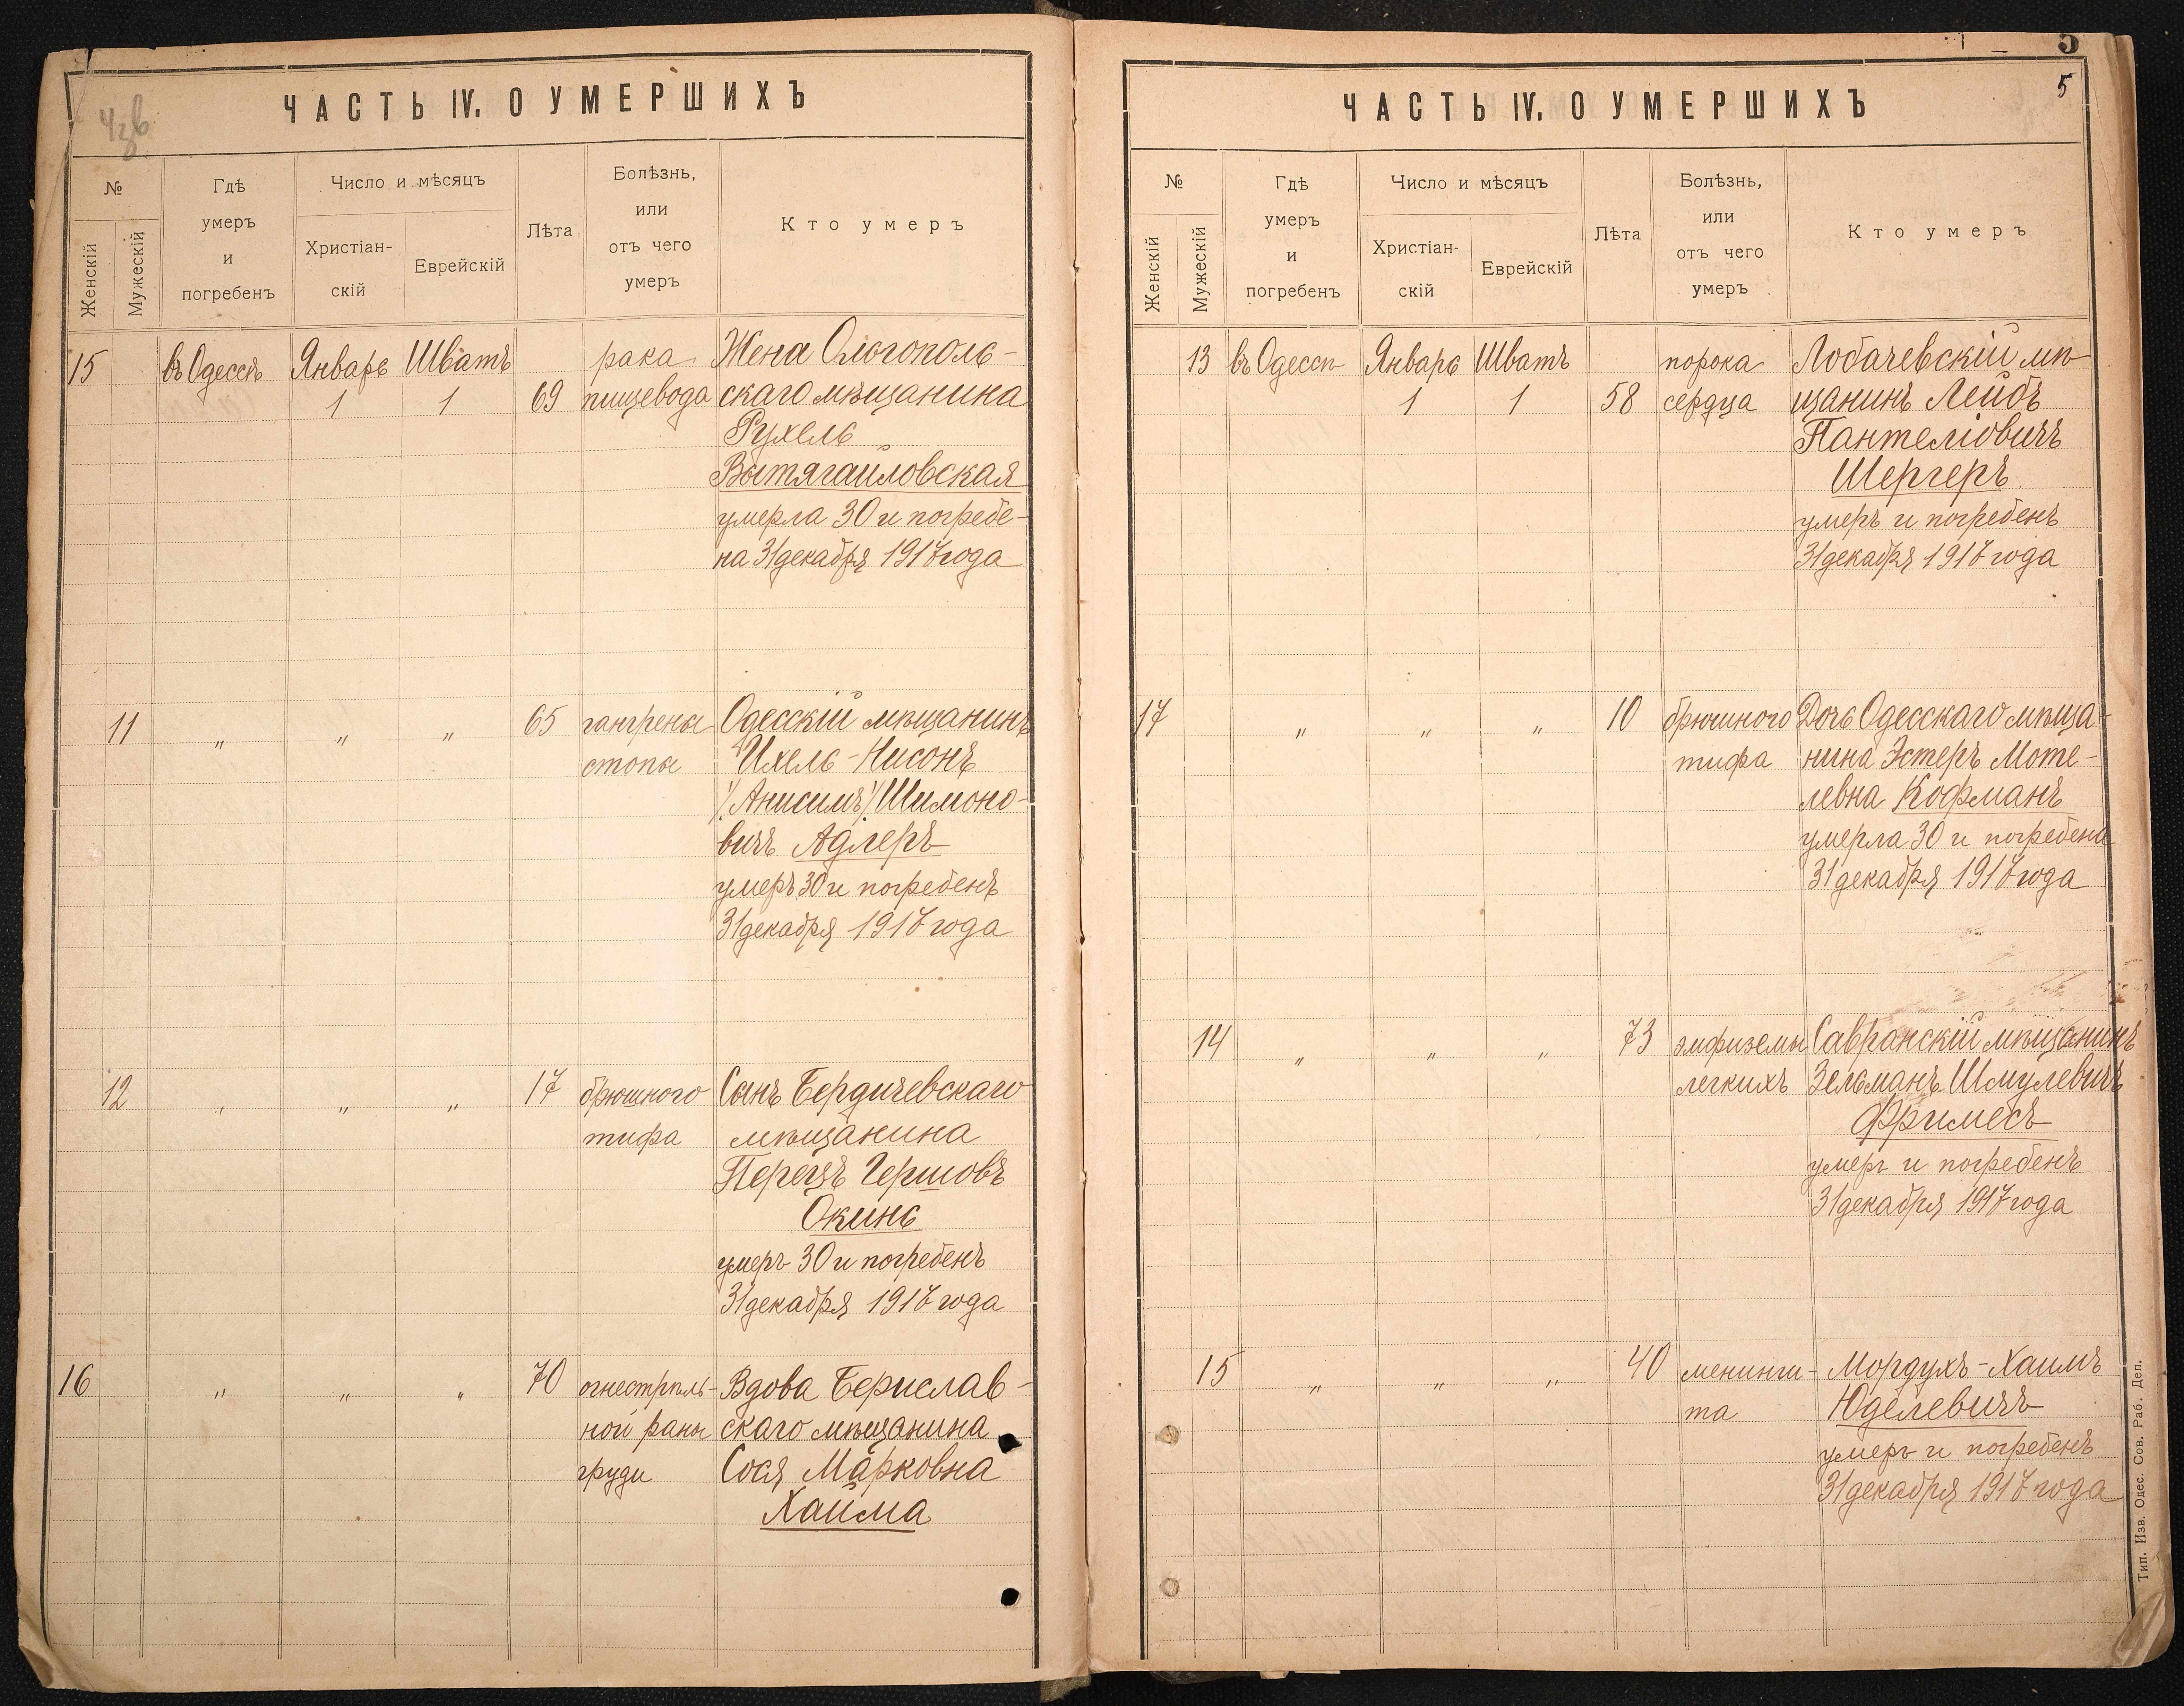 ЧАСТЬ IV. О УМЕРШИХЪ
№
Женскій
Мужескій
Гдѣ
умеръ
и
погребенъ
Число и мѣсяцъ
Христіан-
скій
Еврейскій
Лѣта
Болѣзнь,
или
отъ чего
умеръ
Кто умеръ
15 въ Одессѣ Январь Шватъ рака Жена Ольгополь-
1 1 69 пищевода скаго мѣщанина
Рухель
Вытягайловская
умерла 30 и погребе-
на 31 декабря 1917 года
11 " " " 65 гангрены Одесскій мѣщанинъ
стопы Ихель-Нисонъ
/Анисимъ/ Шимоно-
вичъ Адлеръ
умеръ 30 и погребенъ
31 декабря 1917 года
12 " " " 17 брюшного Сынъ Бердичевскаго
тифа мѣщанина
Перецъ Гершовъ
Окинь
умеръ 30 и погребенъ
31 декабря 1917 года
16 " " " 70 огнестрѣль- Вдова Берислав-
ной раны скаго мѣщанина
груди Сося Марковна
Хайма
5
5
ЧАСТЬ IV. О УМЕРШИХЪ
№
Женскій
Мужескій
Гдѣ
умеръ
и
погребенъ
Число и мѣсяцъ
Христіан-
скій
Еврейскій
Лѣта
Болѣзнь,
или
отъ чего
умеръ
Кто умеръ
13 въ Одессѣ Январь Шватъ порока Лобачевскій мѣ-
1 1 58 сердца щанинъ Лейбъ
Пантеліовичъ
Шергеръ
умеръ и погребенъ
31 декабря 1917 года
17 " " " 10 брюшного Дочь Одесскаго мѣща-
тифа нина Эстеръ Моте-
левна Кофманъ
умерла 30 и погребена
31 декабря 1917 года
14 " " " 73 эмфиземы Савранскій мѣщанинъ
легкихъ Зельманъ Шмулевичъ
Фримесъ
умеръ и погребенъ
31 декабря 1917 года
15 " " " 40 менинги- Мордухъ-Хаимъ
та Юделевичъ
умеръ и погребенъ
31 декабря 1917 года
Тип. Изв. Одес. Сов. Раб. Деп.